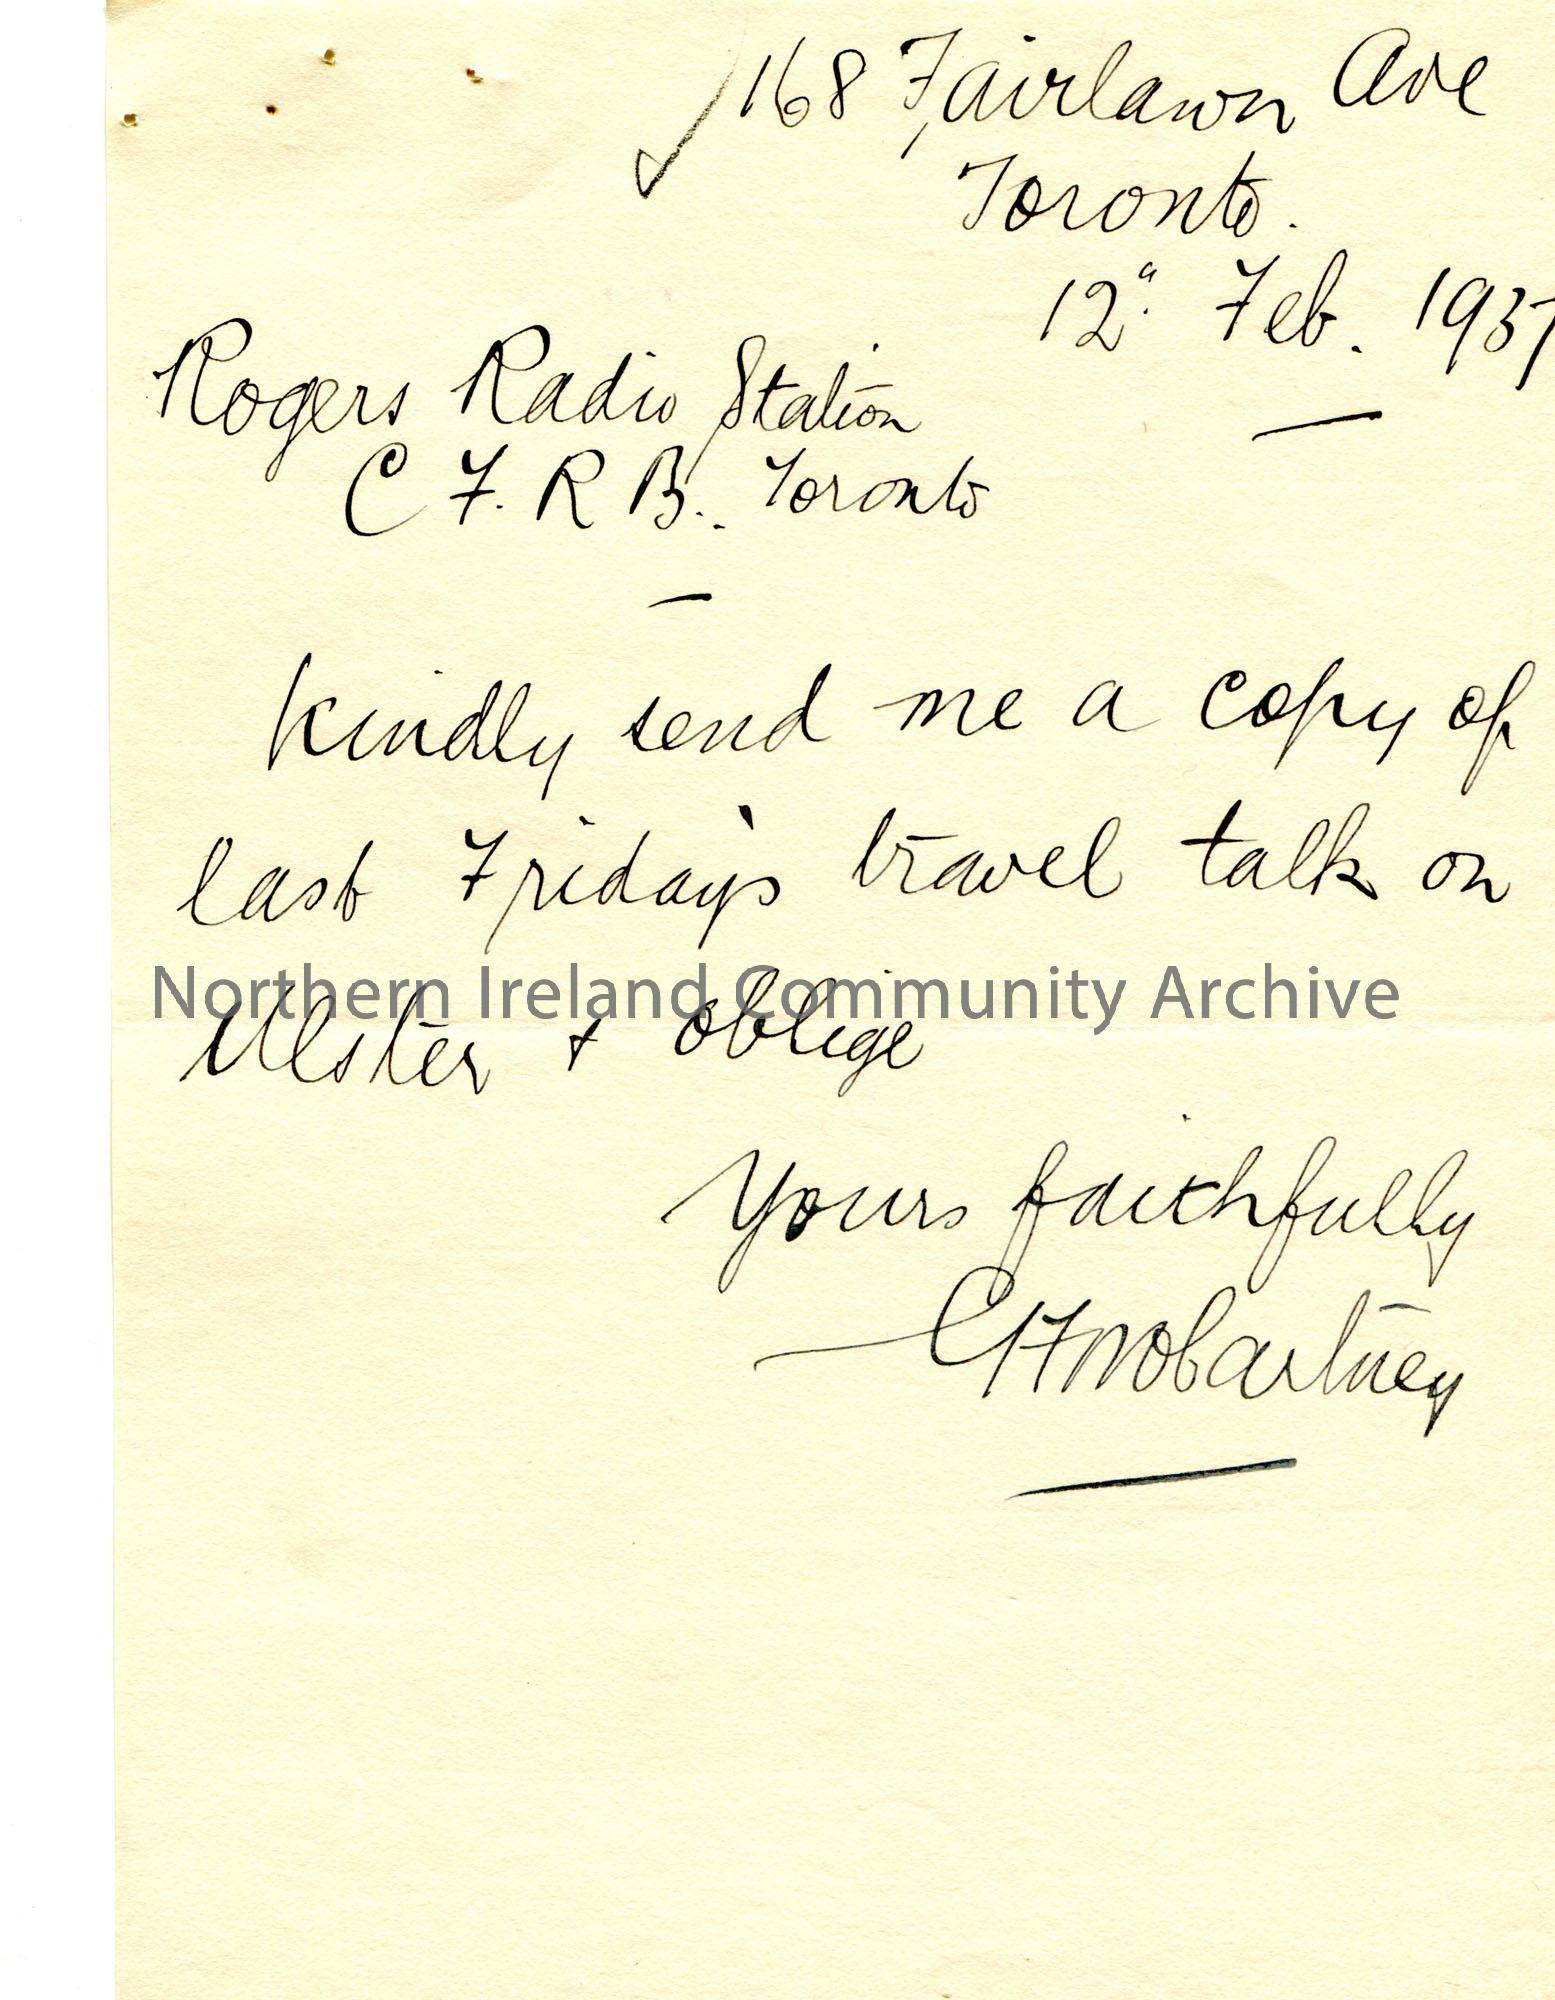 168 Fairlawn Ave
Toronto.
12" Feb. 1937
Rogers Radio Station
C F. R B. Toronto
Kindly send me a copy of
last Friday's travel talk on
Northern Ireland Community Archive
Ulster + oblige
Yours faithfully